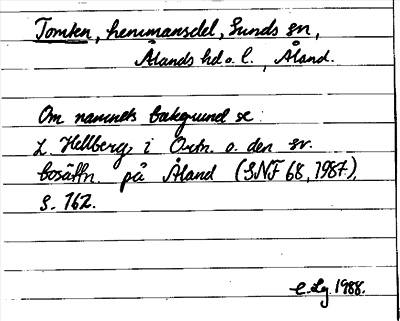 Tomten, hemmansdel, Sunds sn,
Ålands hd o. l., Åland.
Om namnets bakgrund se:
L. Hellberg, i Ortn. o. den sv.
bosättn. på Åland (SNF 68, 1987),
s. 162.
C. Lg. 1988.